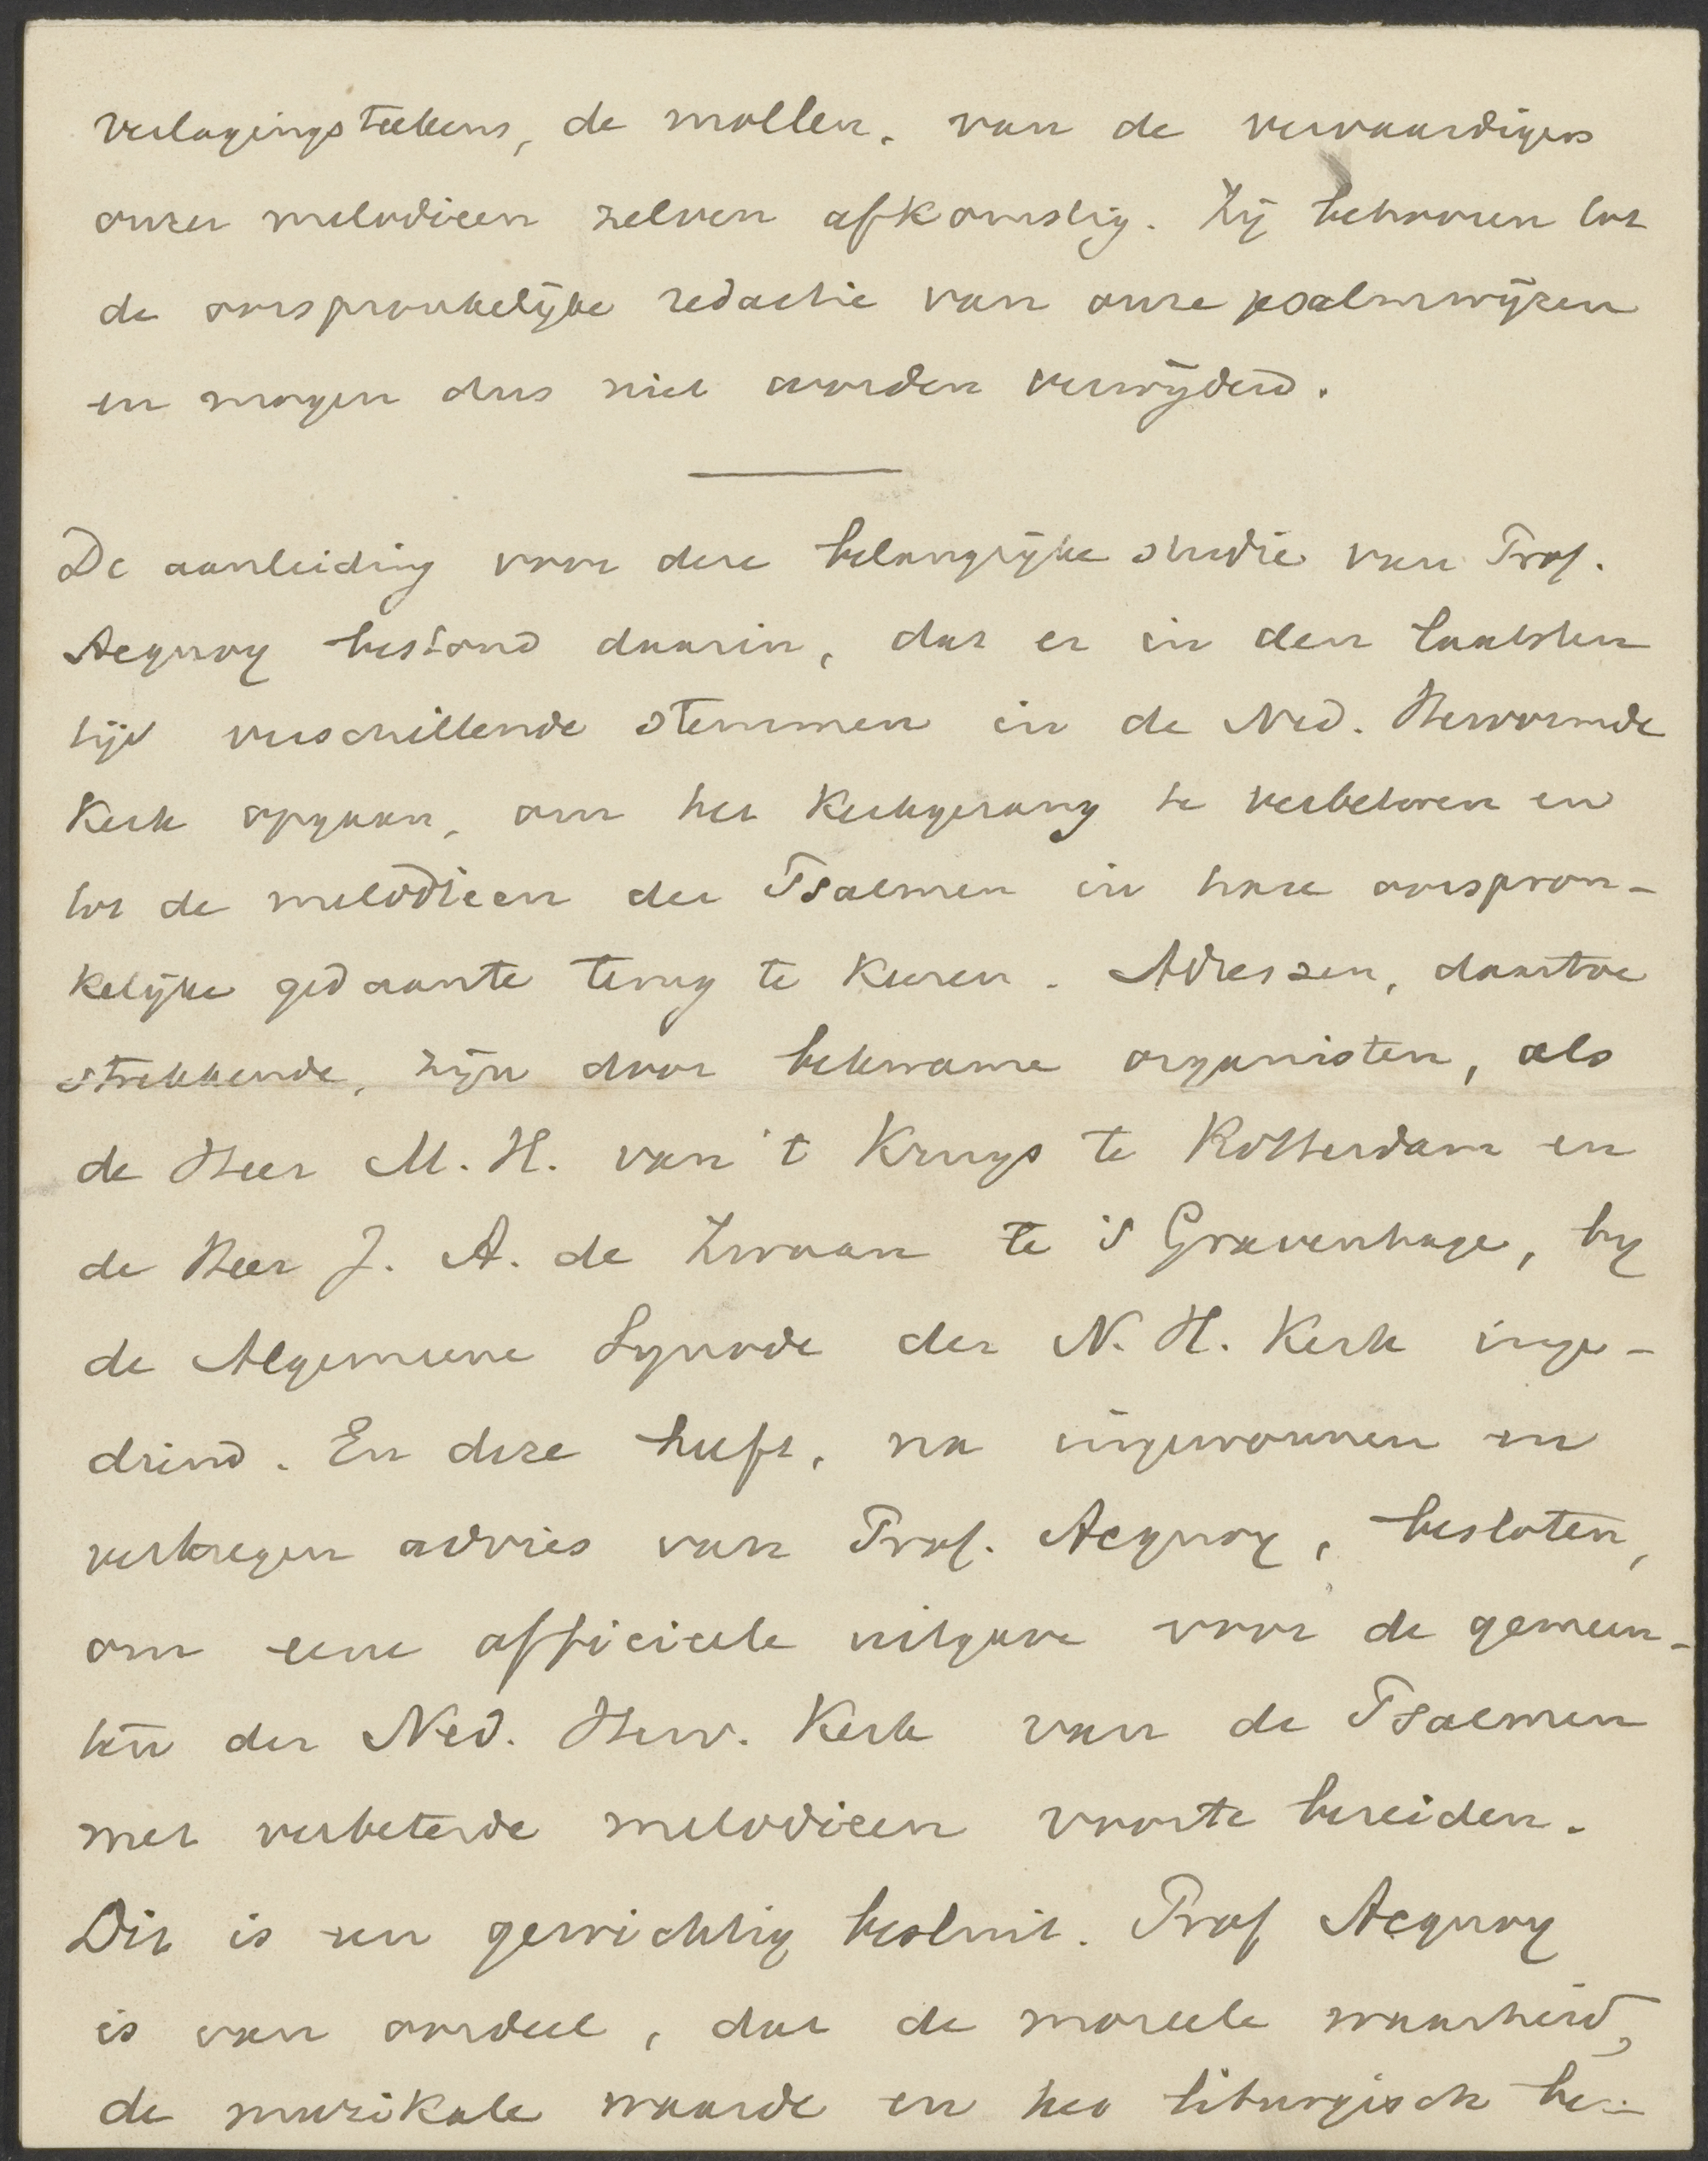 verlagingsteekens, de mollen, van de vervaardigers
onzer melodieen zelven afkomstig. Zij behooren tot
de oorspronkelijke redactie van onze psalmwijzen
en mogen dus niet worden verwijderd.
De aanleiding voor deze belangrijke studie van Prof.
Acquoy bestond daarin, dat er in den laatsten
tijd verschillende stemmen in de Ned. Hervormde
Kerk opgaan, om het Kerkgezang te verbeteren en
tot de melodieen der Psalmen in hare oorspron-
kelijke gedaante terug te keeren. Adressen, daartoe
strekkende, zijn door bekwame organisten, als
de Heer M. H. van 't Kruys te Rotterdam en
de Heer J. A. de Zwaan te 's Gravenhage, by
de Algemeene Synode der N. H. Kerk inge-
diend. En deze heeft, na ingewonnen en
verkregen advies van Prof. Acquoy, besloten,
om eene officieele uitgave voor de gemeen-
ten der Ned. Herv. Kerk van de Psalmen
met verbeterde melodieen voorte bereiden.
Dit is een gewichtig besluit. Prof Acquoy
is van oordeel, dat de moreele waarheid,
de muzikale waarde en het liturgisch be-